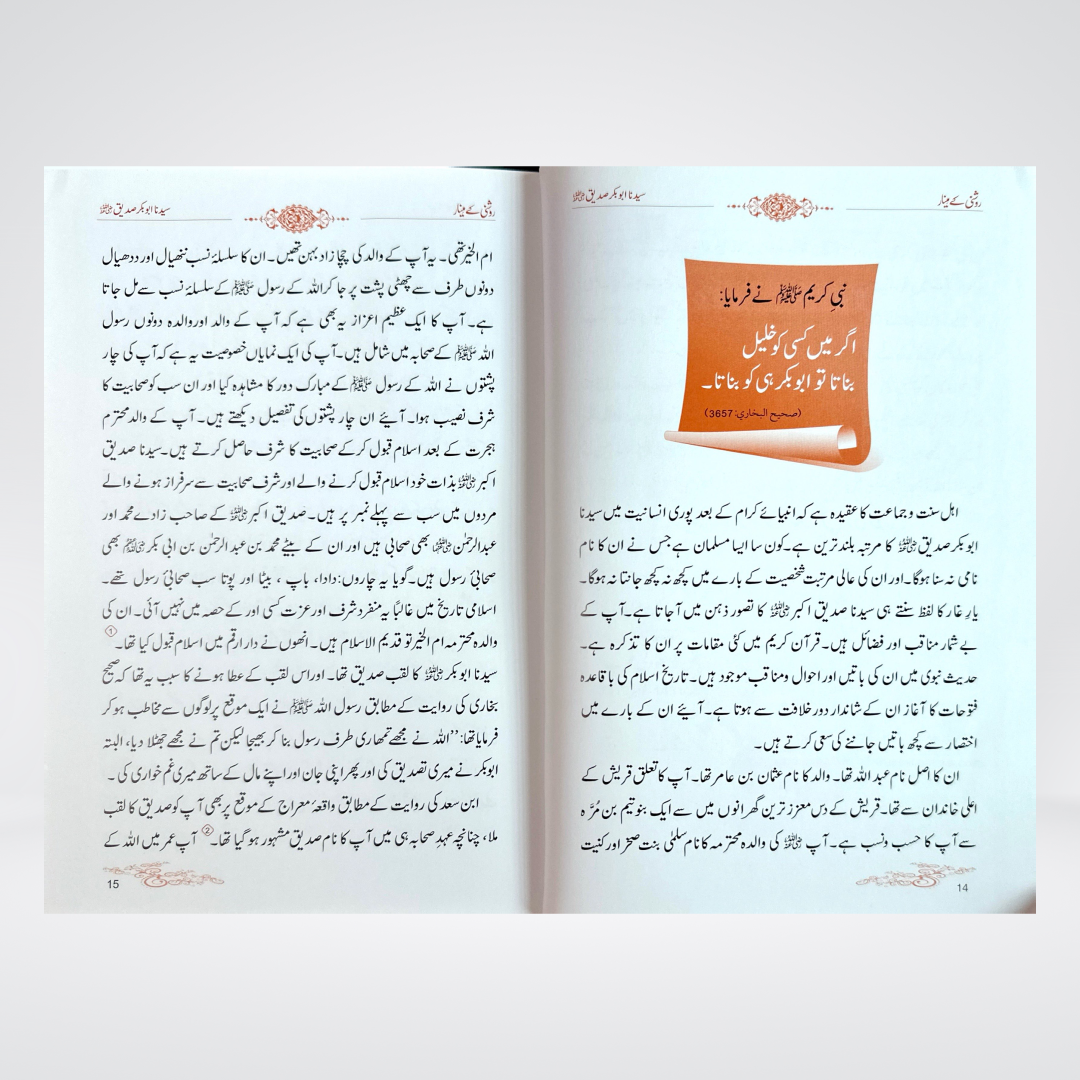 روشنی کے مینار
سیدنا ابوبکر صدیق ؓ
نبیِ کریم ﷺ نے فرمایا:
اگر میں کسی کو خلیل
بناتا تو ابوبکر ہی کو بناتا۔
(صحيح البخاري: 3657)
اہل سنت و جماعت کا عقیدہ ہے کہ انبیائے کرام کے بعد پوری انسانیت میں سیدنا
ابوبکر صدیق ؓ کا مرتبہ بلند ترین ہے۔ کون سا ایسا مسلمان ہے جس نے ان کا نام
نامی نہ سنا ہوگا۔ اور ان کی عالی مرتبت شخصیت کے بارے میں کچھ نہ کچھ جانتا نہ ہوگا۔
یارِ غار کا لفظ سنتے ہی سیدنا صدیق اکبر ؓ کا تصور ذہن میں آجاتا ہے۔ آپ کے
بے شمار مناقب اور فضائل ہیں۔ قرآن کریم میں کئی مقامات پر ان کا تذکرہ ہے۔
حدیث نبوی میں ان کی باتیں اور احوال ومناقب موجود ہیں۔ تاریخ اسلام کی باقاعدہ
فتوحات کا آغاز ان کے شاندار دور خلافت سے ہوتا ہے۔ آیئے ان کے بارے میں
اختصار سے کچھ باتیں جاننے کی سعی کرتے ہیں۔
ان کا اصل نام عبداللہ تھا۔ والد کا نام عثمان بن عامر تھا۔ آپ کا تعلق قریش کے
اعلی خاندان سے تھا۔ قریش کے دس معزز ترین گھرانوں میں سے ایک بنو تیم بن مُرّہ
سے آپ کا حسب ونسب ہے۔ آپ ؓ کی والدہ محترمہ کا نام سلمیٰ بنت صخر اور کنیت
14
روشنی کے مینار
سیدنا ابوبکر صدیق ؓ
ام الخیر تھی۔ یہ آپ کے والد کی چچا زاد بہن تھیں۔ ان کا سلسلۂ نسب ننھیال اور ددھیال
دونوں طرف سے چھٹی پشت پر جا کر اللہ کے رسول ﷺ کے سلسلۂ نسب سے مل جاتا
ہے۔ آپ کا ایک عظیم اعزاز یہ بھی ہے کہ آپ کے والد اور والدہ دونوں رسول
اللہ ﷺ کے صحابہ میں شامل ہیں۔ آپ کی ایک نمایاں خصوصیت یہ ہے کہ آپ کی چار
پشتوں نے اللہ کے رسول ﷺ کے مبارک دور کا مشاہدہ کیا اور ان سب کو صحابیت کا
شرف نصیب ہوا۔ آیئے ان چار پشتوں کی تفصیل دیکھتے ہیں۔ آپ کے والد محترم
ہجرت کے بعد اسلام قبول کر کے صحابیت کا شرف حاصل کرتے ہیں۔ سیدنا صدیق
اکبر ؓ بذات خود اسلام قبول کرنے والے اور شرف صحابیت سے سرفراز ہونے والے
مردوں میں سب سے پہلے نمبر پر ہیں۔ صدیق اکبر ؓ کے صاحب زادے محمد اور
عبدالرحمٰن ؓ بھی صحابی ہیں اور ان کے بیٹے محمد بن عبدالرحمٰن بن ابی بکر ؓ بھی
صحابیٔ رسول ہیں۔ گویا یہ چاروں: دادا، باپ، بیٹا اور پوتا سب صحابیٔ رسول تھے۔
اسلامی تاریخ میں غالباً یہ منفرد شرف اور عزت کسی اور کے حصہ میں نہیں آئی۔ ان کی
والدہ محترمہ ام الخیر تو قدیم الاسلام ہیں۔ انھوں نے دار ارقم میں اسلام قبول کیا تھا۔①
سیدنا ابوبکر ؓ کا لقب صدیق تھا۔ اور اس لقب کے عطا ہونے کا سبب یہ تھا کہ صحیح
بخاری کی روایت کے مطابق رسول اللہ ﷺ نے ایک موقع پر لوگوں سے مخاطب ہو کر
فرمایا تھا: ”اللہ نے مجھے تمھاری طرف رسول بنا کر بھیجا لیکن تم نے مجھے جھٹلا دیا، البتہ
ابوبکر نے میری تصدیق کی اور پھر اپنی جان اور اپنے مال کے ساتھ میری غم خواری کی۔
ابن سعد کی روایت کے مطابق واقعۂ معراج کے موقع پر بھی آپ کو صدیق کا لقب
ملا، چنانچہ عہدِ صحابہ ہی میں آپ کا نام صدیق مشہور ہو گیا تھا۔② آپ عمر میں اللہ کے
15